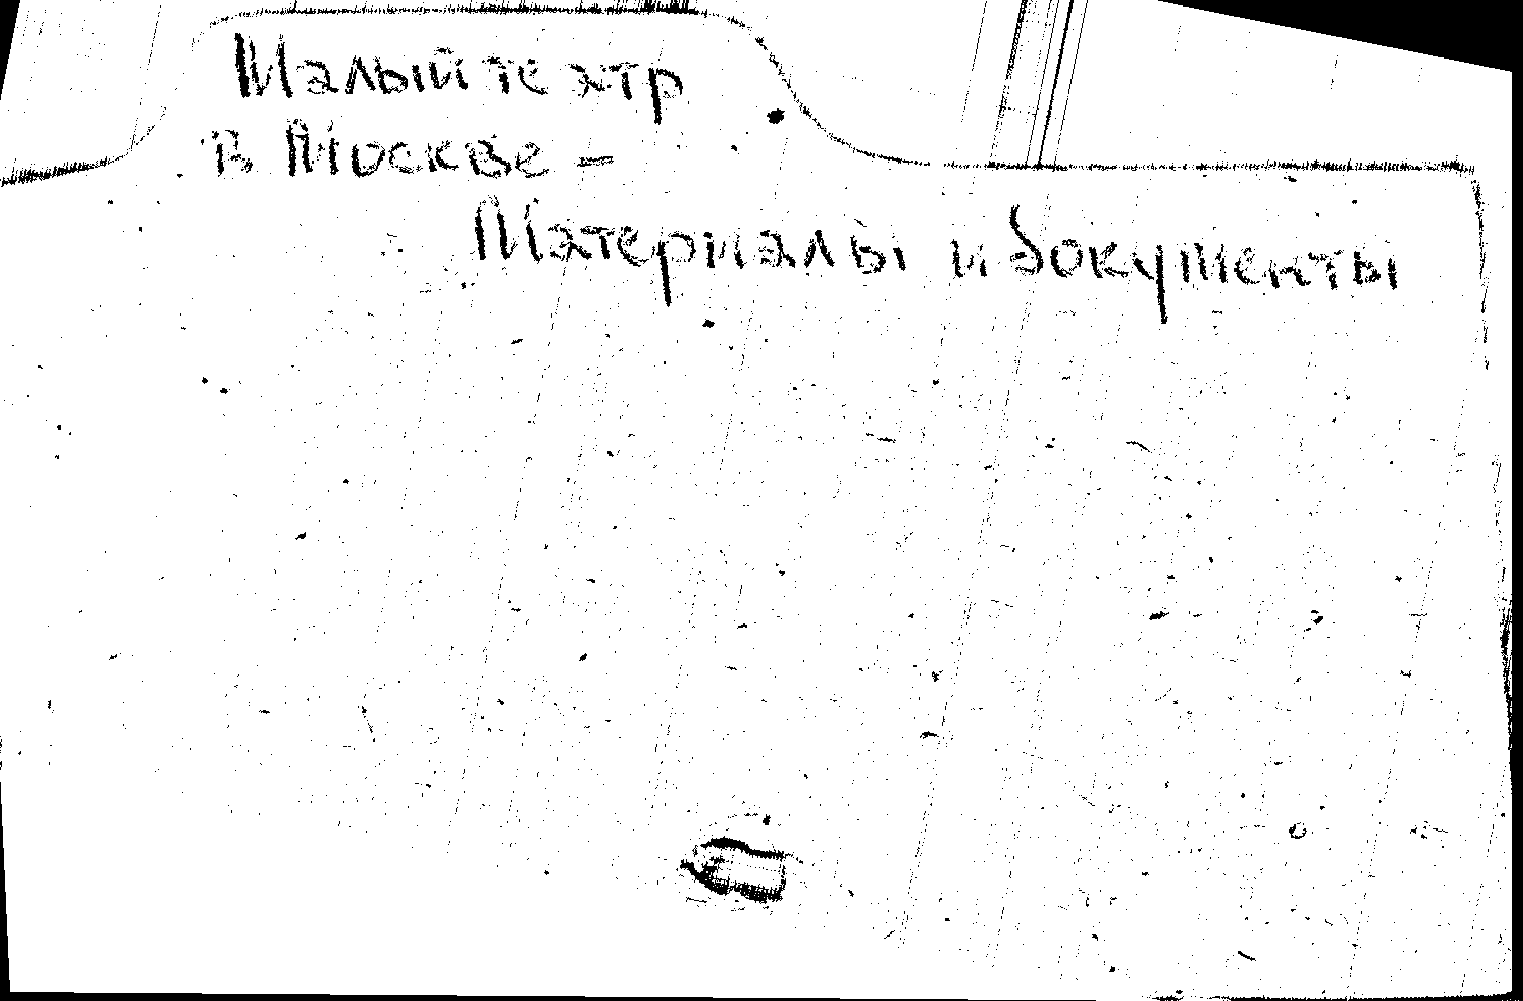 Малый театр
в Москве -
Материалы и документы